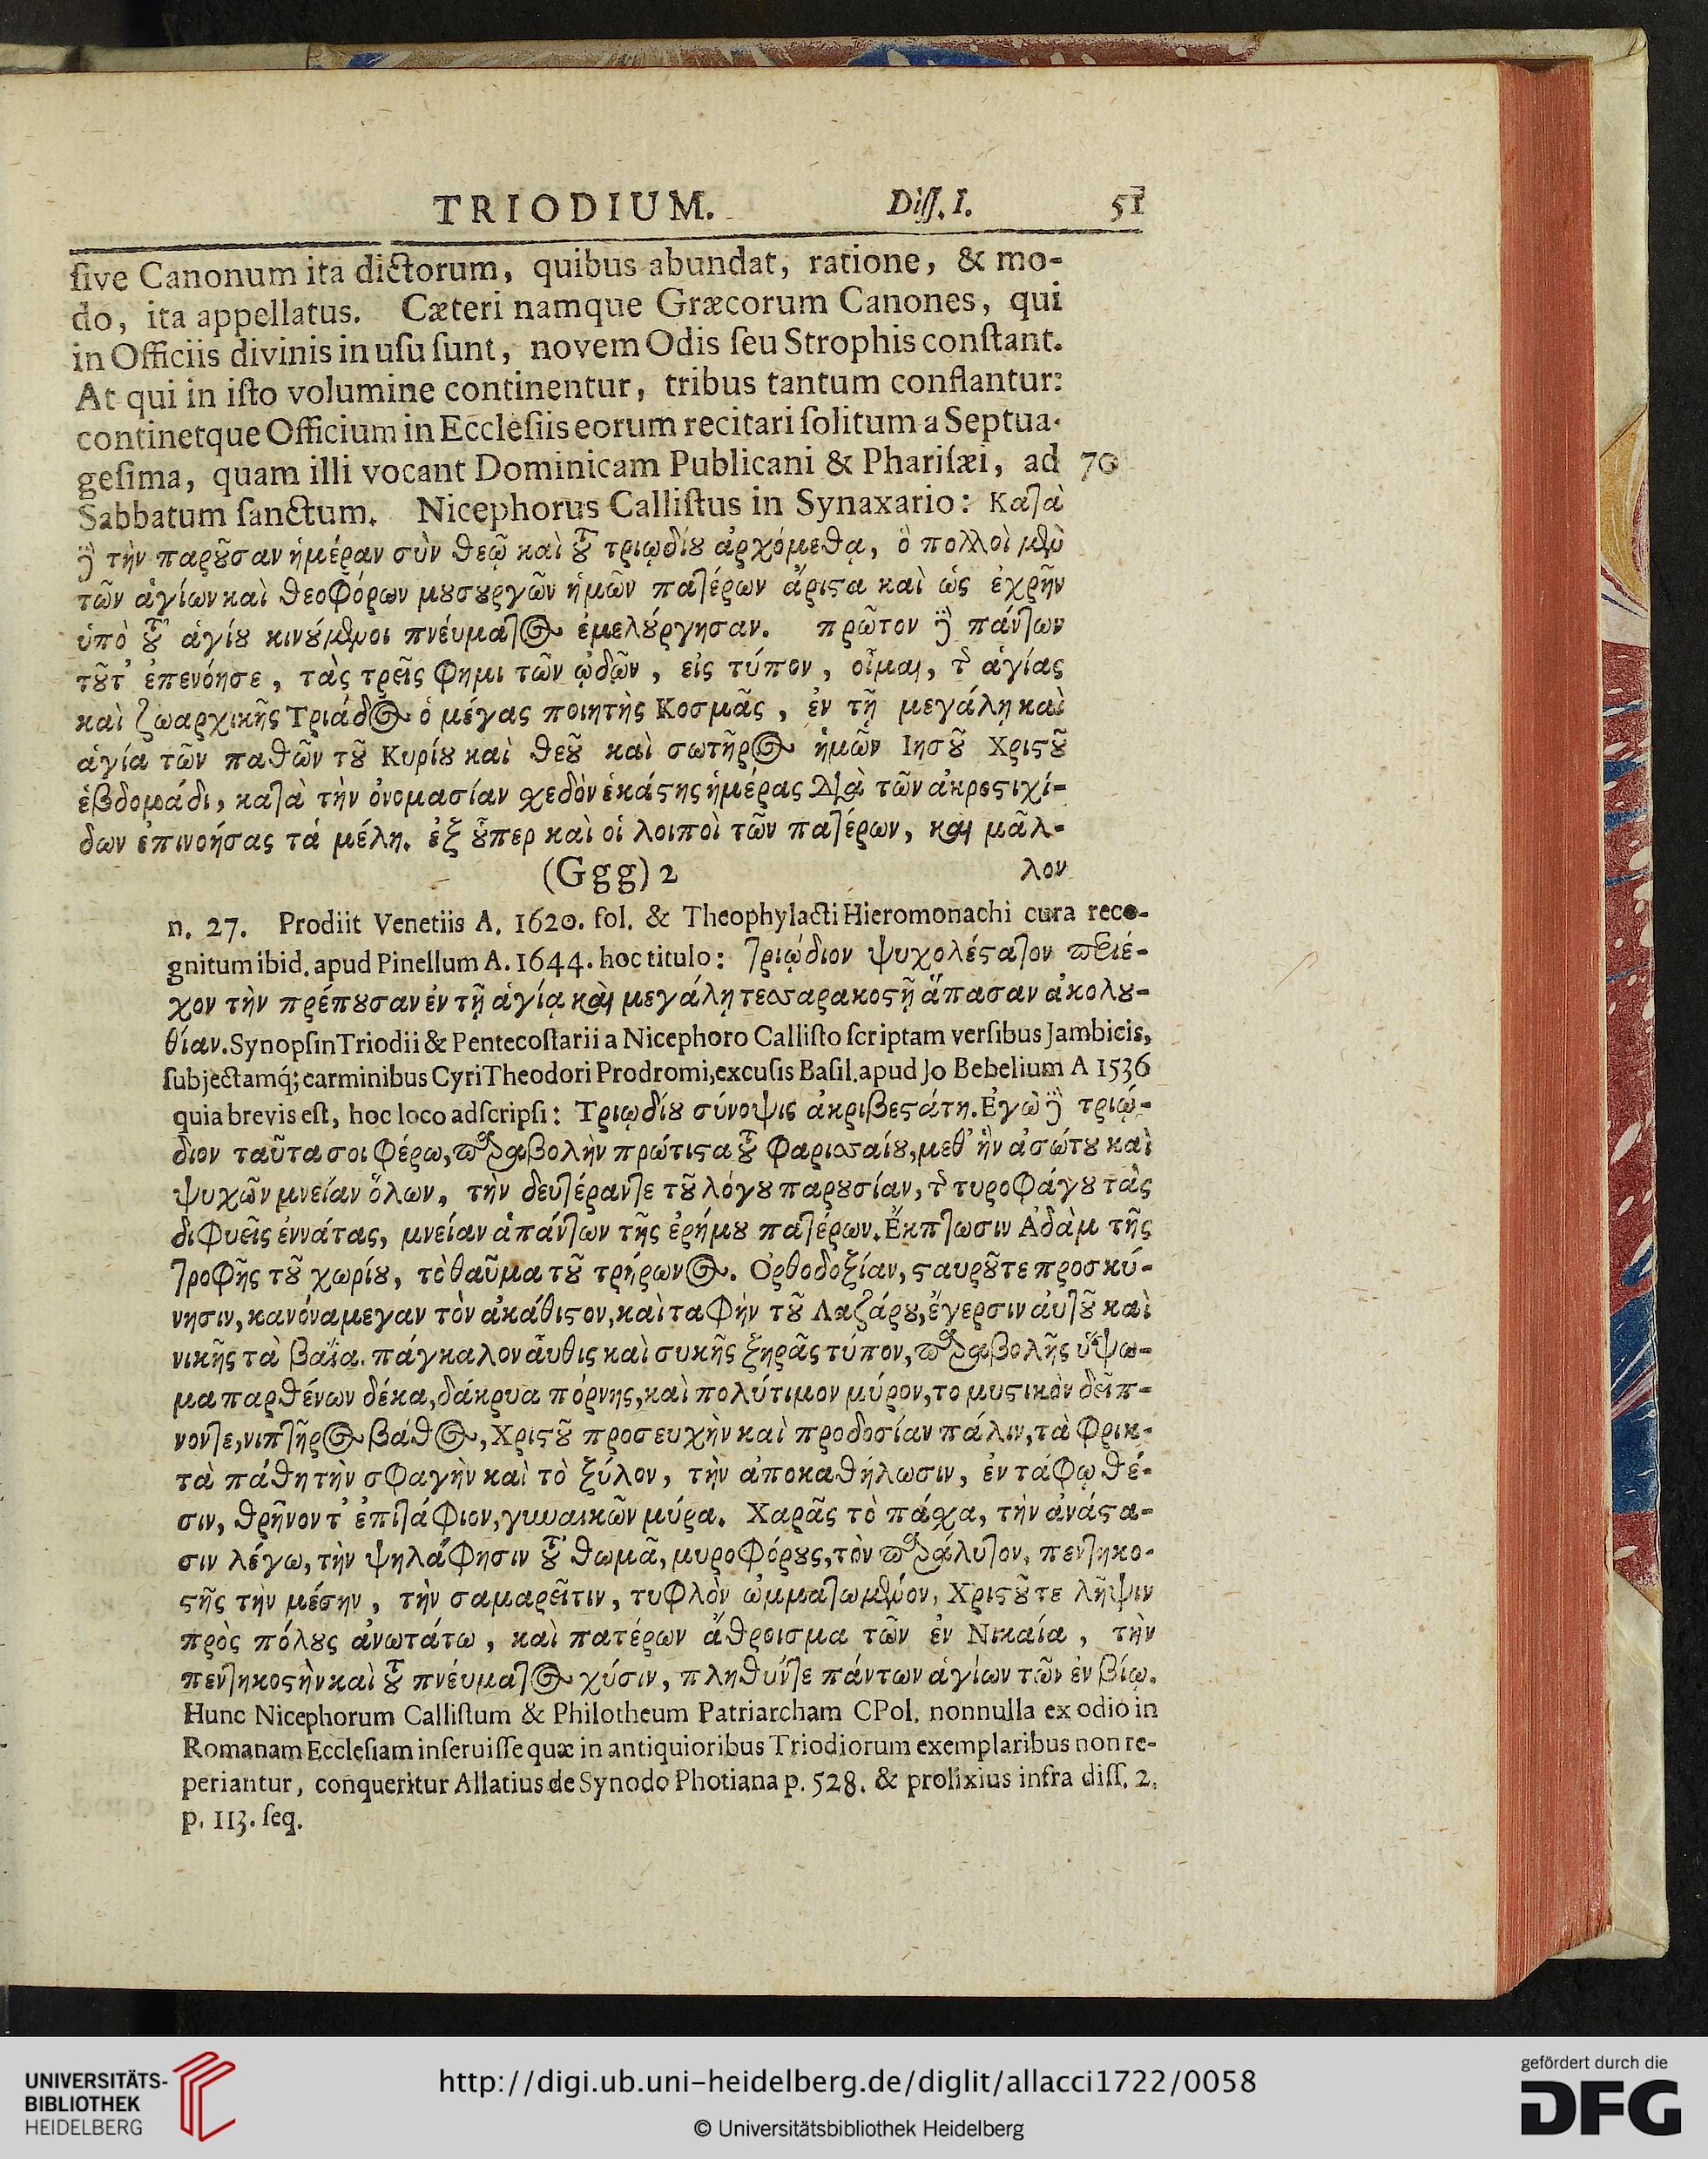 TRIODIUM. Diſſ. I. 51
ſive Canonum ita dictorum, quibus abundat, ratione, & mo-
do, ita appellatus. Cæteri namque Græcorum Canones, qui
in Officiis divinis in uſu ſunt, novem Odis ſeu Strophis conſtant.
At qui in iſto volumine continentur, tribus tantum conflantur:
continetque Officium in Eccleſiis eorum recitari ſolitum a Septua-
geſima, quam illi vocant Dominicam Publicani & Phariſæi, ad 70
Sabbatum ſanctum. Nicephorus Calliſtus in Synaxario: Κατὰ
ἢ τὴν παρȣ͂σαν ἡμέραν σὺν θεῷ καὶ τȣ͂ τριῳδίȣ ἀρχόμεθα, ὃ πολλοὶ μὲν
τῶν ἁγίων καὶ θεοφόρων μȣσȣργῶν ἡμῶν πατέρων ἄριϛα καὶ ὡς ἐχρῆν
ὑπὸ τȣ͂ ἁγίȣ κινȣ́μενοι πνεύματος ἐμελȣ́ργησαν. πρῶτον ἢ πάντων
τȣ͂τ' ἐπενόησε, τὰς τρεῖς φημι τῶν ᾠδῶν, εἰς τύπον, οἶμαι, τ͂ ἁγίας
καὶ ζωαρχικῆς Τριάδος ὁ μέγας ποιητὴς Κοσμᾶς, ἐν τῇ μεγάλη καὶ
ἁγία τῶν παθῶν τȣ͂ Κυρίȣ καὶ θεȣ͂ καὶ σωτῆρος ἡμῶν Ιησȣ͂ Χριϛȣ͂
ἑβδομάδι, κατὰ τὴν ὀνομασίαν χεδὸν ἑκάϛης ἡμέρας διὰ τῶν ἀκροϛιχί-
δων ἐπινοήσας τά μέλη. ἐξ ȣ̔͂περ καὶ οἱ λοιποὶ τῶν πατέρων, καὶ μᾶλ-
(Ggg) 2 λον
n. 27. Prodiit Venetiis A. 1620. fol. & Theophylacti Hieromonachi cura reco-
gnitum ibid. apud Pinellum A. 1644. hoc titulo: Τριῴδιον ψυχολέϛατον περιέ-
χον τὴν πρέπȣσαν ἐν τῇ ἁγίᾳ καὶ μεγάλῃ τεσσαρακοϛῇ ἅπασαν ἀκολȣ-
θίαν. Synopſin Triodii & Pentecoſtarii a Nicephoro Calliſto ſcriptam verſibus Jambicis,
ſubjectamq́; carminibus Cyri Theodori Prodromi, excuſis Baſil. apud Jo Bebelium A 1536
quia brevis eſt, hoc loco adſcripſi: Τριῳδίȣ σύνοψις ἀκριβεϛάτη. Ἐγὼ ἢ τριῴ-
διον ταῦτα σοι φέρω, παραβολὴν πρώτιϛα τȣ͂ φαρισσαίȣ, μεθ' ἣν ἀσώτȣ καὶ
ψυχῶν μνείαν ὅλων, τὴν δευτέραν τε τȣ͂ λόγȣ παρȣσίαν, τ͂ τυροφάγȣ τὰς
διφυεῖς ἐννάτας, μνείαν ἁπάντων τῆς ἐρήμȣ πατέρων. Ἔκπτωσιν Ἀδὰμ τῆς
τροφῆς τȣ͂ χωρίȣ, τὸ θαῦμα τȣ͂ τρήρωνος. Ορθοδοξίαν, ϛαυρȣ͂ τε προσκύ-
νησιν, κανόνα μεγαν τὸν ἀκάθιϛον, καὶ ταφὴν τȣ͂ Λαζάρȣ, ἔγερσιν ἀυτȣ͂ καὶ
νικῆς τὰ βαΐα. πάγκαλον ἆυθις καὶ συκῆς ξηρᾶς τύπον, παραβολῆς ὕψω-
μα παρθένων δέκα, δάκρυα πόρνης, καὶ πολύτιμον μύρον, το μυϛικὸν δεῖπ-
νον τε, νιπτῆρος βάθος, Χριϛȣ͂ προσευχὴν καὶ προδοσίαν πάλιν, τὰ φρικ-
τὰ πάθη τὴν σφαγὴν καὶ τὸ ξύλον, τὴν ἀποκαθήλωσιν, ἐν τάφῳ θέ-
σιν, θρῆνον τ' ἐπιτάφιον, γυναικῶν μύρα. Χαρᾶς τὸ πάχα, τὴν ἀνάϛα-
σιν λέγω, τὴν ψηλάφησιν τȣ͂ θωμᾶ, μυροφόρȣς, τὸν παράλυτον, πεντηκο-
ϛῆς τὴν μέσην, τὴν σαμαρεῖτιν, τυφλὸν ὠμματωμένον, Χριϛȣ͂ τε λῆψιν
πρὸς πόλȣς ἀνωτάτω, καὶ πατέρων ἄθροισμα τῶν ἐν Νικαία, τὴν
πεντηκοϛὴν καὶ τȣ͂ πνέυματος χύσιν, πληθύν τε πάντων ἁγίων τῶν ἐν βίῳ.
Hunc Nicephorum Calliſtum & Philotheum Patriarcham CPol. nonnulla ex odio in
Romanam Eccleſiam inſeruiſſe quæ in antiquioribus Triodiorum exemplaribus non re-
periantur, conqueritur Allatius de Synodo Photiana p. 528. & prolixius infra diſſ. 2.
p. 113. ſeq.
UNIVERSITÄTS-
BIBLIOTHEK
HEIDELBERG
http://digi.ub.uni-heidelberg.de/diglit/allacci1722/0058
© Universitätsbibliothek Heidelberg
gefördert durch die
DFG